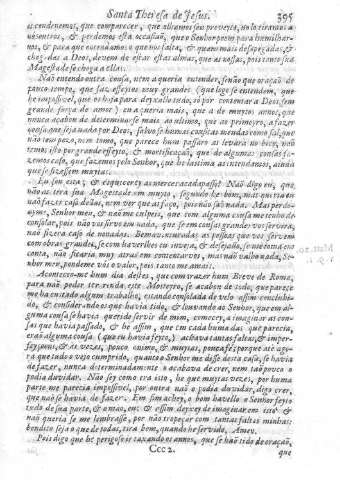 Santa Theresa de Jesus. 395
si condenemos, que comparecer, que alhamos seu proveyto, no lo tiramos a
nós outros, & perdemos esta occasiaõ, que o Senhor poem para humilhar-
nos, & para que entendamos o que nos falta, & quam mais desapegadas, &
chegadas a Deos, devem de estar estas almas, que as nossas, pois tanto sua
Magestade se chega a ellas.
Naõ entendo nesta cousa, nem a queria entender, senaõ que oraçaõ de
pouco tempo, que faz effeitos muy grandes (que logo se entendem, que
he impossivel, que os haja para deyxallo tudo, só por contentar a Deos, sem
grande força de amor) eu a queria mais, que a de muytos annos, que
nunca acabou de determinarse mais ao ultimo, que ao primeyro, a fazer
cousa que seja nada por Deos, salvo se humas cousitas miudas como sal, que
naõ tem peso, nem tomo, que parece hum passaro as levará no bico, naõ
temos isto por grande effeyto, & mortificaçaõ, que de algumas cousas fa-
zemos caso, que fazemos pelo Senhor, que he lastima as entendamos, ainda
que se fizessem muytas.
Eu sou esta; & esquecerey as merces a cada passo? Naõ digo eu, que
naõ as terá Sua Magestade em muyto, segundo he bom, mas queria eu
naõ fazer caso dellas, nem ver que as faço, pois naõ saõ nada. Mas perdo-
ayme, Senhor meu, & naõ me culpeis, que com alguma cousa me tenho de
consolar, pois naõ vos sirvo em nada, que se em cousas grandes vos servira,
naõ fizera caso de nonadas. Bemaventuradas as pessoas que vos servem
com obras grandes, se com haverlhes eu inveja, & desejallo, se me toma em
conta, naõ ficaria muy atras em contentarvos, mas naõ valho nada, Se-
nhor meu, pondeme vós o valor, pois tanto me amais.
Aconteceo-me hum dia destes, que com trazer hum Breve de Roma,
para naõ poder ter renda este Mosteyro, se acabou de todo, que parece
me ha custado algum trabalho, estando consolada de vello assim concluhi-
do, & considerando os que havia tido, & louvando ao Senhor, que em al-
guma cousa se havia querido servir de mim, comecey a imaginar as cou-
sas que havia passado, & he assim, que em cada huma das que parecia,
era alguma cousa (que eu havia feyto,) achava tantas faltas, & imper-
feyçoens, & ás vezes, pouco animo, & muytas, pouca fé; porque até ago-
ra que tudo o vejo cumprido, quanto o Senhor me disse desta casa, se havia
de fazer, nunca determinadamente o acabava de crer, nem taõ pouco o
podia duvidar. Naõ sey como era isto, he que muytas vezes, por huma
parte me parecia impossivel, por outra naõ o podia duvidar, digo crer,
que naõ se havia de fazer. Em fim achey, o bom havello o Senhor feyto
tudo de sua parte, & o mao, eu: & assim deyxey de imaginar em isto &
naõ queria se me lembrasse, por naõ tropeçar com tantas faltas minhas:
bendito seja o que de todas, tira bem, quando he servido, Amen.
Pois digo que he perigoso ir taxando os annos, que se haõ tido de oraçaõ,
Ccc 2. que